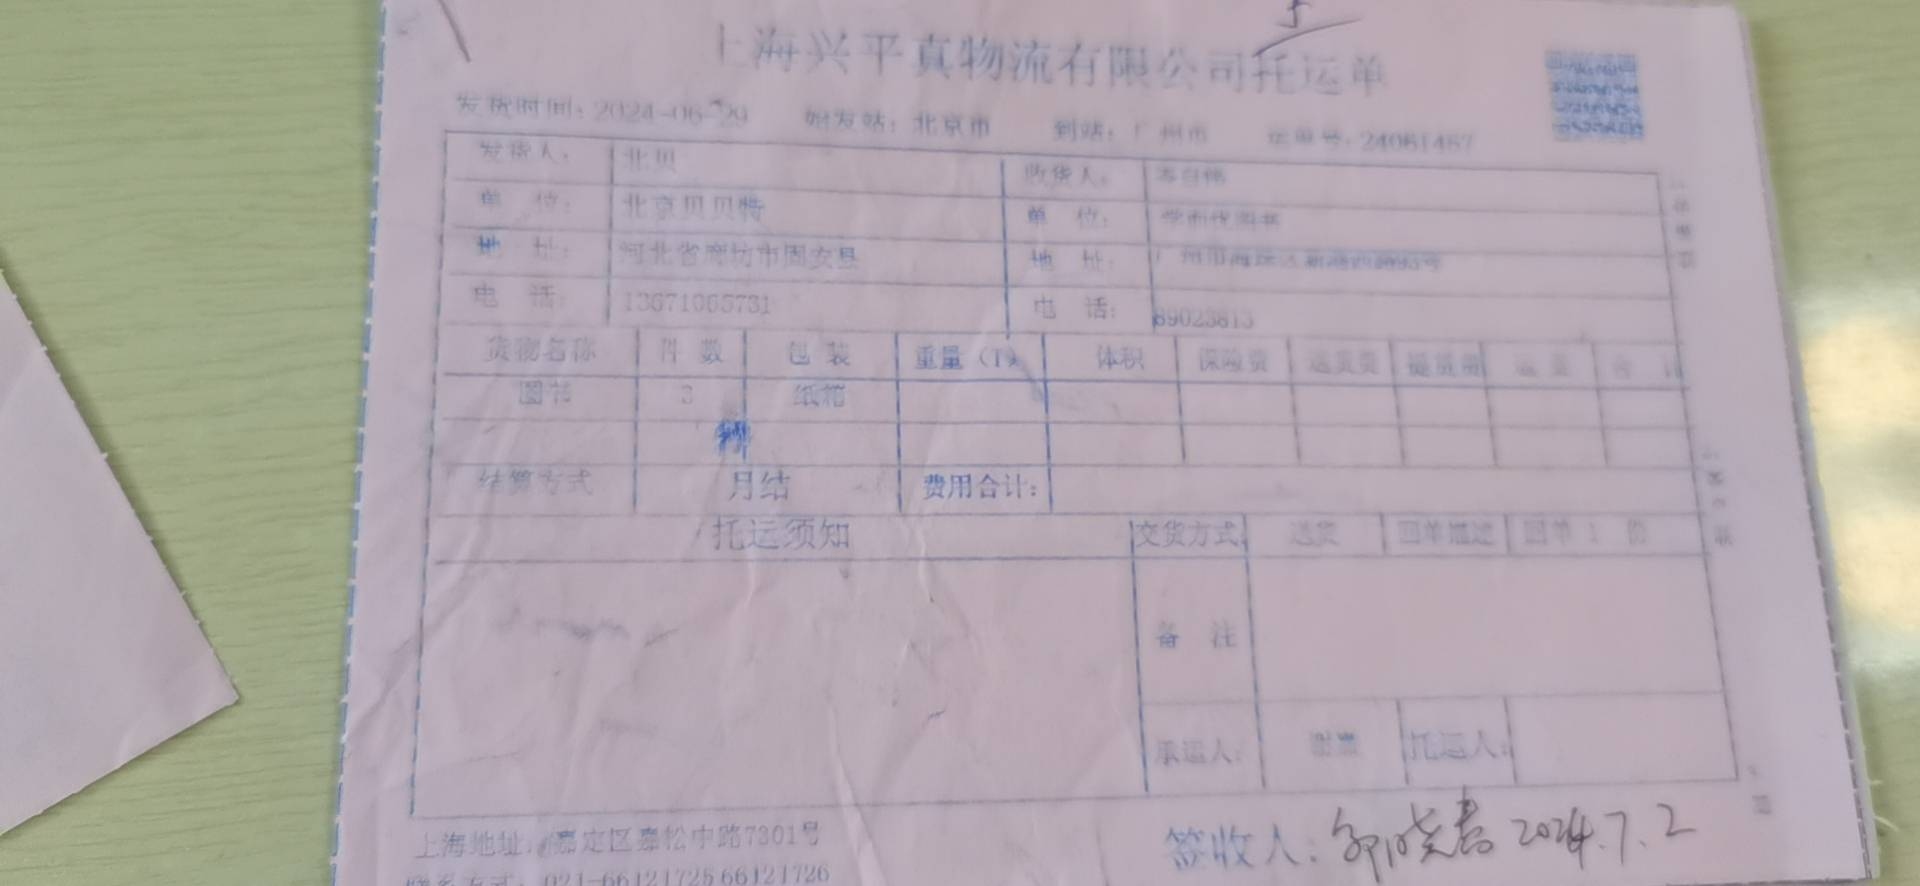 上海兴平真物流有限公司托运单
发货时间：2024-06-29 始发站：北京市 到站：广州市 运单号：24061467
发货人： 北贝 收货人：
单 位： 北京贝贝特 单 位： 学而优图书
地 址： 河北省廊坊市固安县 地 址：
电 话： 13671065731 电 话： 89023813
货物名称 件 数 包 装 重量（T） 体积 保险费 送货费 提货费 运 费 合 计
图书 3 纸箱
结算方式 月结 费用合计：
托运须知 交货方式 送货 回单 回单 1 份
备 注
承运人： 托运人：
上海地址：嘉定区嘉松中路7301号
签收人： 2024.7.2
联系方式：021-66121725 66121726